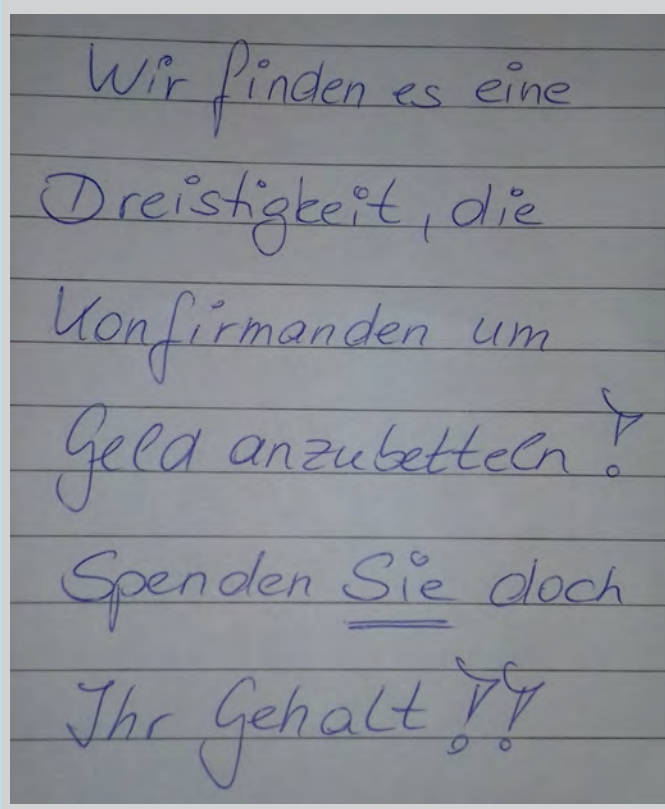 Wir finden es eine
Dreistigkeit, die
Konfirmanden um
Geld anzubetteln!
Spenden Sie doch
Ihr Gehalt!!